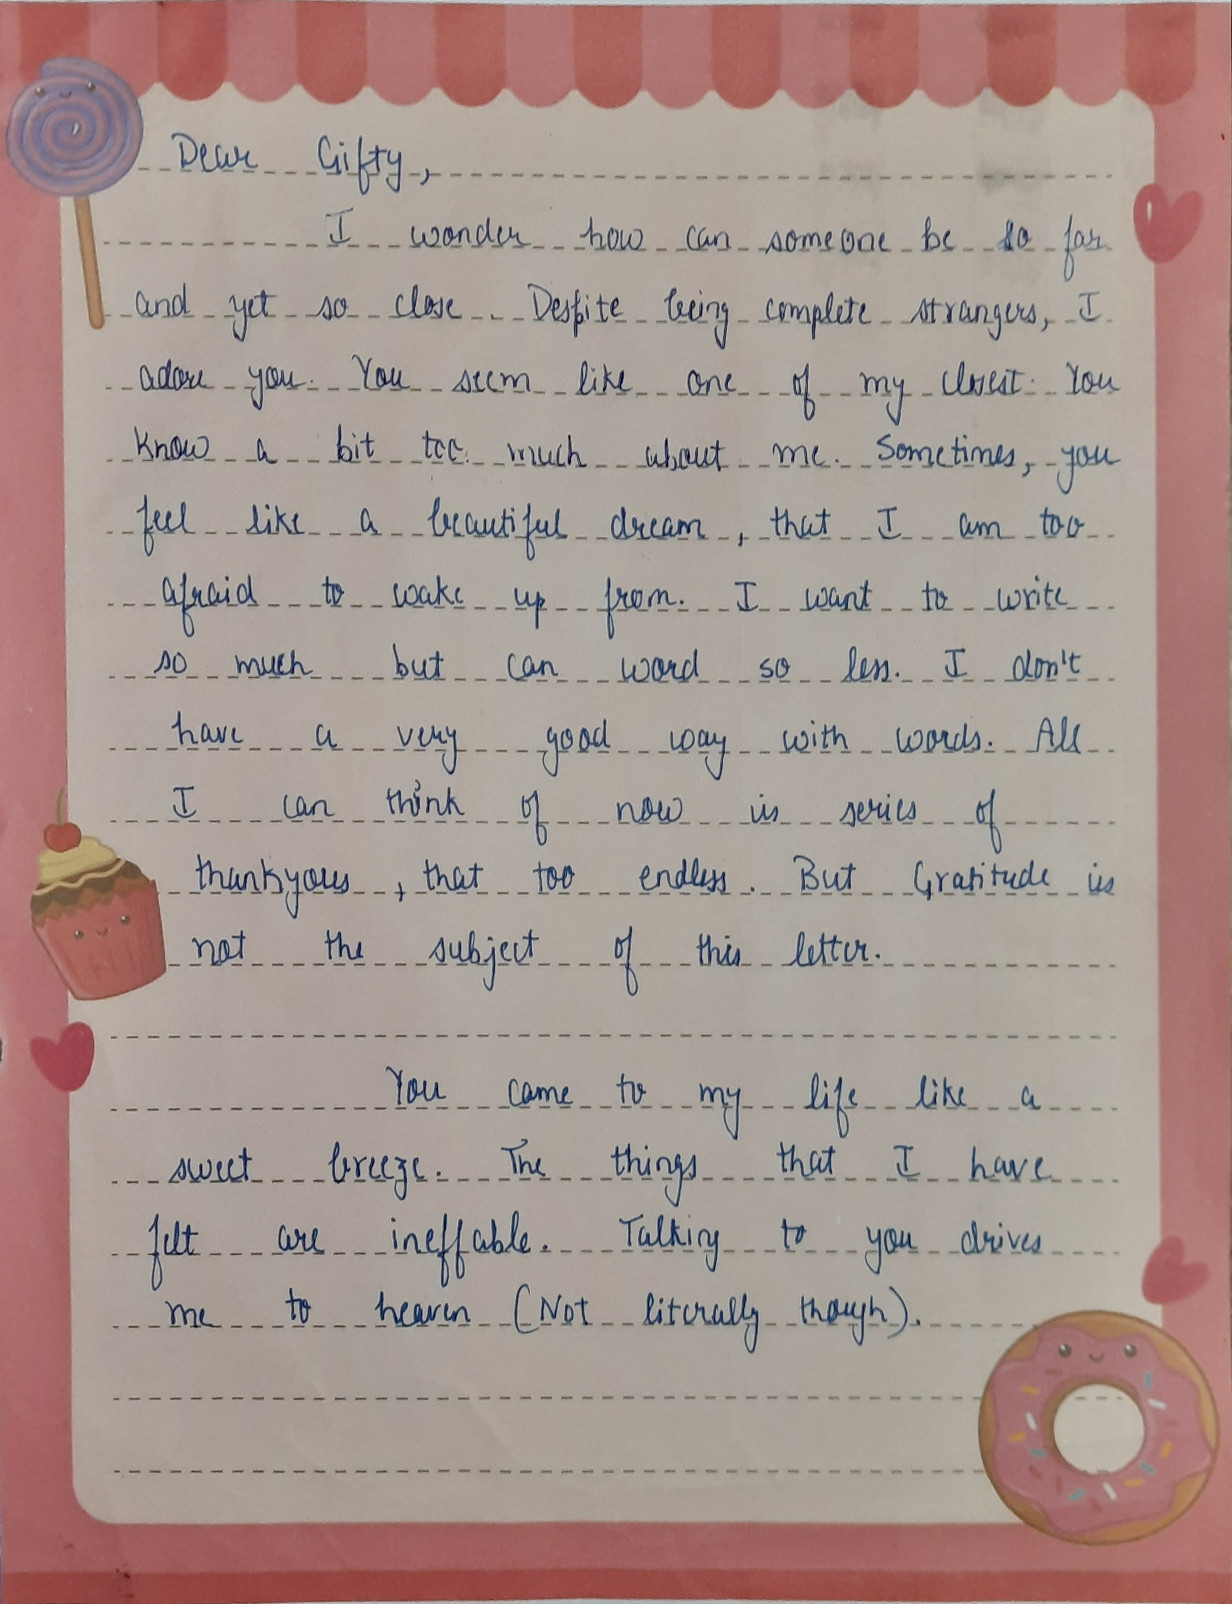 Dear Gifty,
I wonder how can someone be so far
and yet so close. Despite being complete strangers, I
adore you. You seem like one of my closest. You
know a bit too much about me. Sometimes, you
feel like a beautiful dream, that I am too
afraid to wake up from. I want to write
so much but can word so less. I don't
have a very good way with words. All
I can think of now is series of
thankyous, that too endless. But Gratitude is
not the subject of this letter.
You came to my life like a
sweet breeze. The things that I have
felt are ineffable. Talking to you drives
me to heaven (Not literally though).